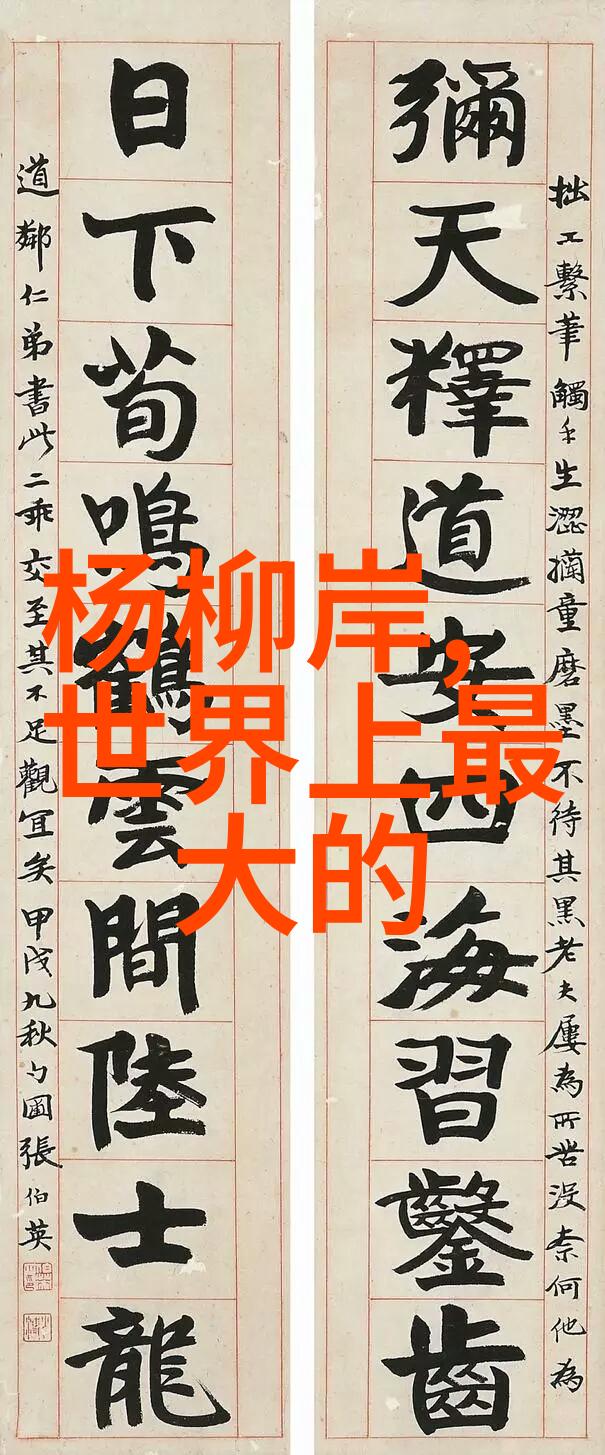 杨柳岸,
世界上最
大的
拙工繫筆觸手生澀童磨墨不待其黑老夫屢為所苦没奈何他為
彌天釋道安四海習鑿齒
日下荀鳴鶴雲間陸士龍
道鄰仁弟書此二乖交至其不足觀宜矣甲戌九秋勺圃張伯英